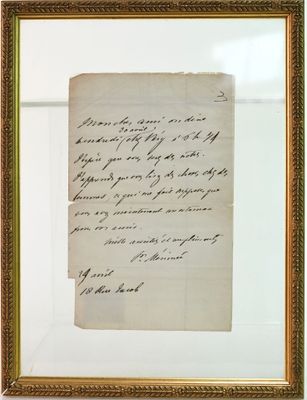 Mon cher ami on dîne
30 avril
vendredi chez Véry à 6h 1/4
J'espère que vous des nôtres.
J'apprends que vous des choses chez des
femmes, ce qui me fait supposer que
vous maintenant
pour
mille amitiés et compliments
Pr. Mérimée
29 avril
18 Rue Jacob